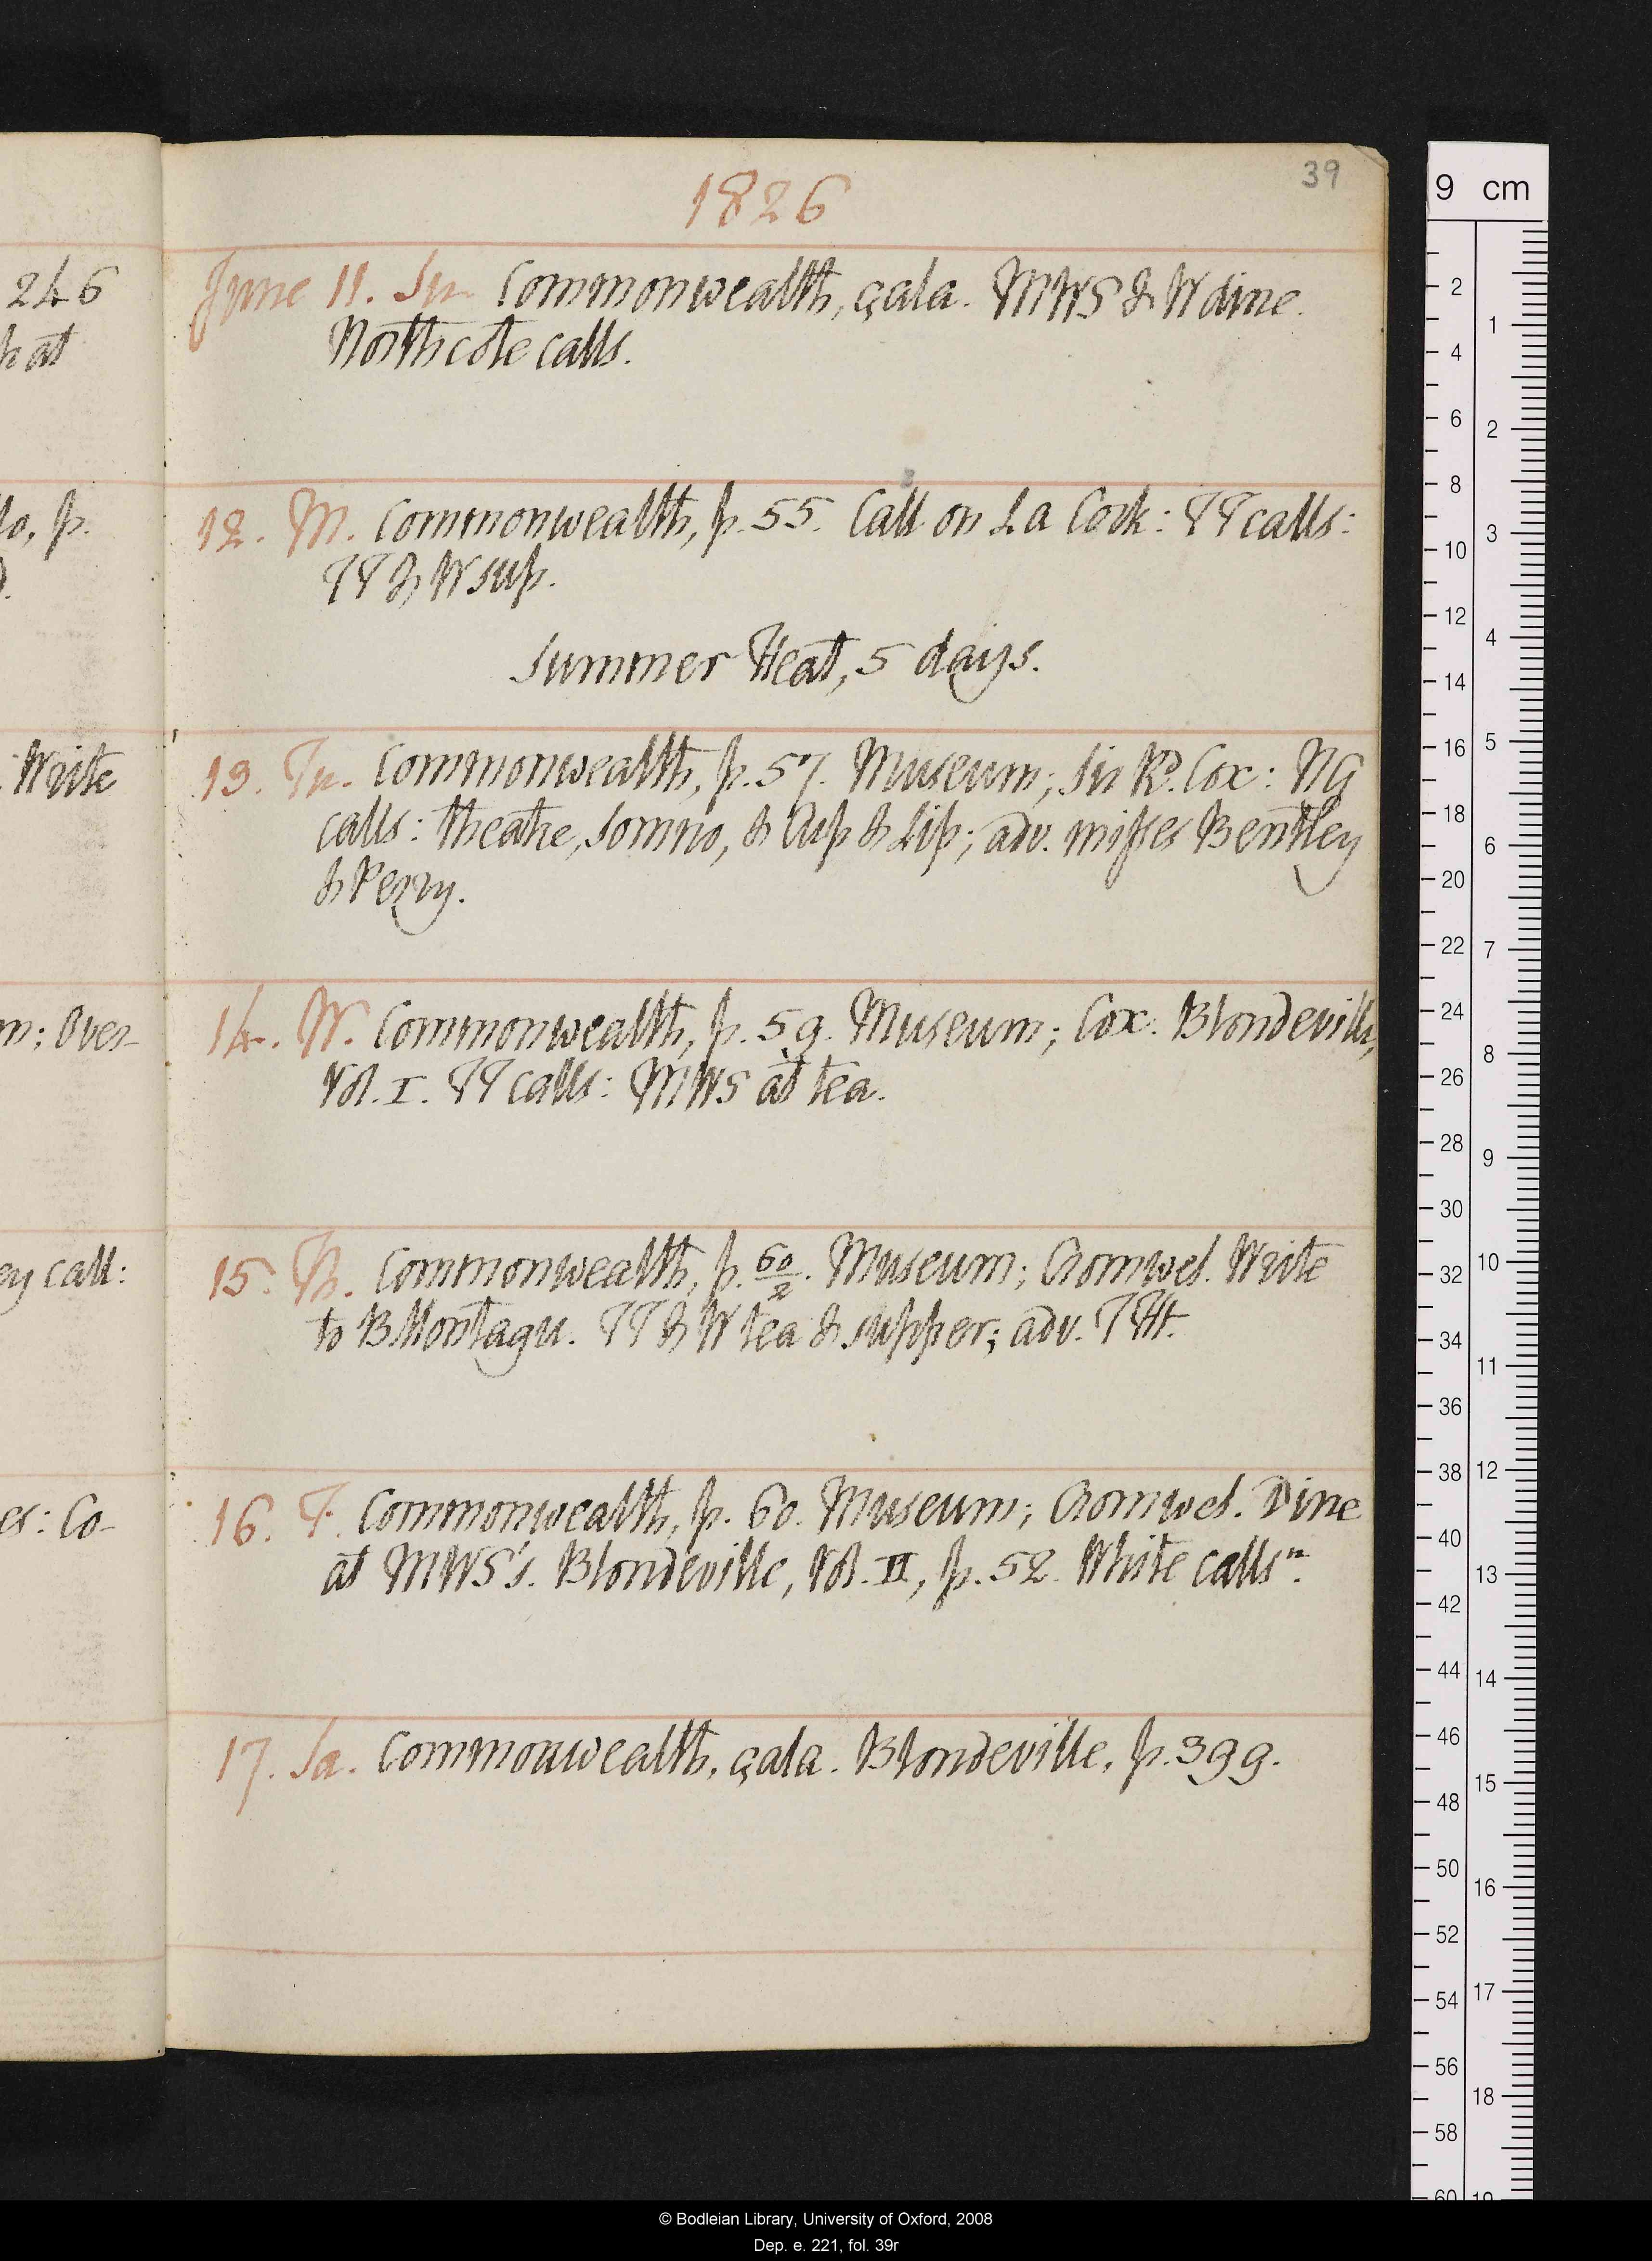 39
1826
246
h at
June 11. Su. Commonwealth, çala. MWS & W dine.
Northcote calls.
lo, p.
12. M. Commonwealth, p. 55. Call on La Cork: TT calls:
TT & W sup.
Summer Heat, 5 days.
Write
13. Tu. Commonwealth, p. 57. Museum; Sir Rd. Cox: NG
calls: theatre, Somno, & Cup & Lip; adv. misses Bentley
& Perry.
m; Over-
14. W. Commonwealth, p. 59. Museum; Cox. Blondeville,
Vol. I. TT calls: MWS at tea.
ey call:
15. Th. Commonwealth, p. 60/2. Museum; Cromwel. Write
to B Montagu. TT & W tea & supper; adv. THt.
es: Co-
16. F. Commonwealth, p. 60. Museum; Cromwel. Dine
at MWS's. Blondeville, Vol. II, p. 52. White calls n.
17. Sa. Commonwealth, çala. Blondeville, p. 399.
9 cm
2 4 6 8 10 12 14 16 18 20 22 24 26 28 30 32 34 36 38 40 42 44 46 48 50 52 54 56 58 60
1 2 3 4 5 6 7 8 9 10 11 12 13 14 15 16 17 18 19
© Bodleian Library, University of Oxford, 2008
Dep. e. 221, fol. 39r